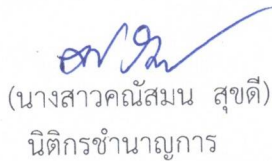 (นางสาวคณัสมน สุขดี)
นิติกรชำนาญการ